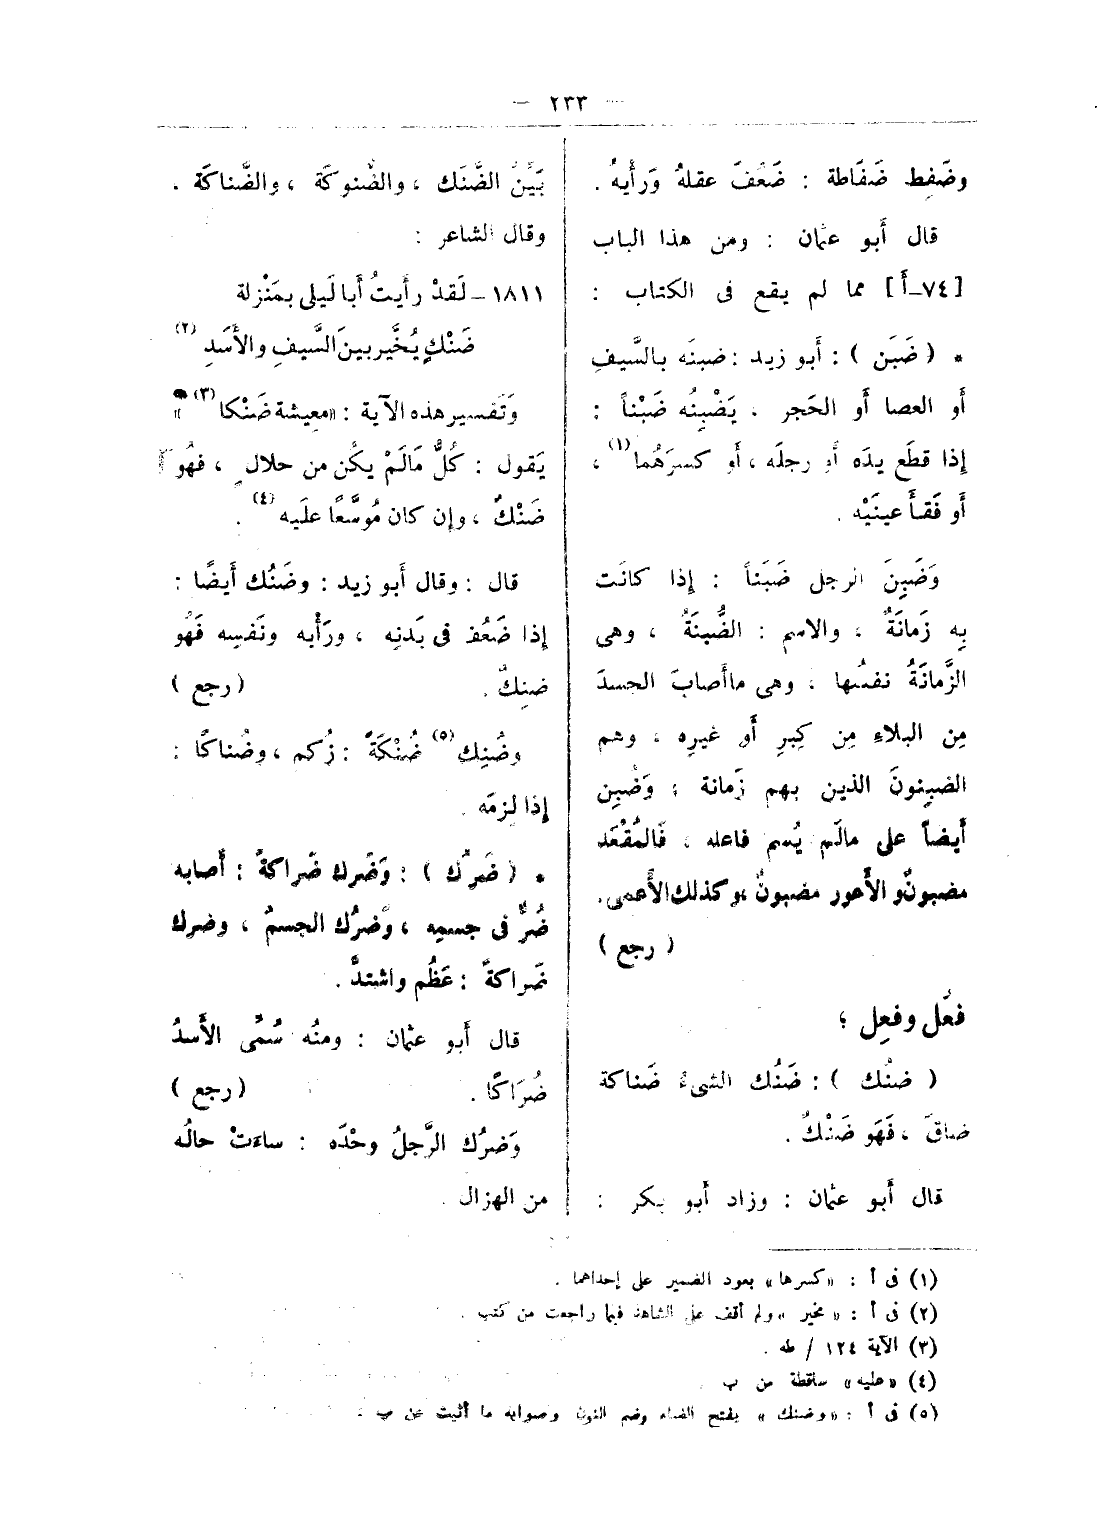 — ٢٣٣ —
وضَفِط ضَفَاطة : ضَعُفَ عقلهُ وَرأيهُ .
قال أَبو عثمان : ومن هذا الباب
[٧٤ـ أ] مما لم يقع فى الكتاب :
* ( ضَبَن ) : أَبو زيد : ضبنَه بالسَّيفِ
أَو العصا أَو الحَجر ، يَضْبِنُه ضَبْناً :
إذا قطَع يدَه أو رجلَه ، أَو كسرَهُما (١) ،
أَو فَقأَ عينَيْه .
وَضَبِنَ الرجل ضَبَناً : إذا كانَت
بِه زَمانَةٌ ، والاسم : الضُّبنَةُ ، وهى
الزَّمانَةُ نفسُها ، وهى ماأَصابَ الجسدَ
مِن البلاءِ مِن كِبرِ أَو غيرِه ، وهم
الضبِنونَ الذين بهم زَمانة ؛ وَضُبِن
أَيضاً على مالَم يُسم فاعله ، فَالمُقْعَد
مضبونٌ والأَعور مضبونٌ ،وكذلك الأَعمى.
( رجع )
فعُل وفعِل ؛
( ضنُك ) : ضَنُك الشىءُ ضَناكة
ضاقَ ، فَهَو ضَنْكٌ .
قال أَبو عثمان : وزاد أَبو بكر :
بَيِّنُ الضَّنَك ، والضُّنوكَة ، والضَّناكَة .
وقال الشاعر :
١٨١١ ـ لَقدْ رأَيتُ أَبا لَيلى بمَنْزلة
ضَنْكٍ يُخَّير بينَ السَّيفِ والأَسَدِ (٢)
وَتَفسير هذه الآية : «معيشة ضَنْكا (٣) »
يَقول : كُلُّ مَالَمْ يكُن من حلالٍ ، فهُو
ضَنْكٌ ، وإن كان مُوسَّعًا علَيه (٤) .
قال : وقال أَبو زيد : وضَنُك أَيضًا :
إذا ضَعُف فى بَدنِه ، ورَأْيه ونَفسِه فَهُو
ضنِكٌ . ( رجع )
وضُنِك (٥) ضُنْكَةً : زُكم ، وضُناكًا :
إذا لزمَه .
* ( ضَرُك ) : وَضَرك ضَراكةً : أَصابه
ضُرٌّ فى جسمِه ، وَضرُك الجسمُ ، وضرك
ضَراكةً : عَظُم واشتدَّ .
قال أَبو عثمان : ومنُه سُمِّى الأَسدُ
ضُرَاكًا . ( رجع )
وَضرُك الرَّجلُ وحْدَه : ساءَتْ حالُه
من الهزال .
(١) فى أ : «كسرها» بعود الضمير على إحداهما .
(٢) فى أ : « مخير » ولم أقف على الشاهد فيما راجعت من كتب .
(٣) الآية ١٢٤ / طه .
(٤) «عليه» ساقطة من ب
(٥) فى أ : «وضنك » بفتح الضاد وضم النون وصوابه ما أثبت عن ب .